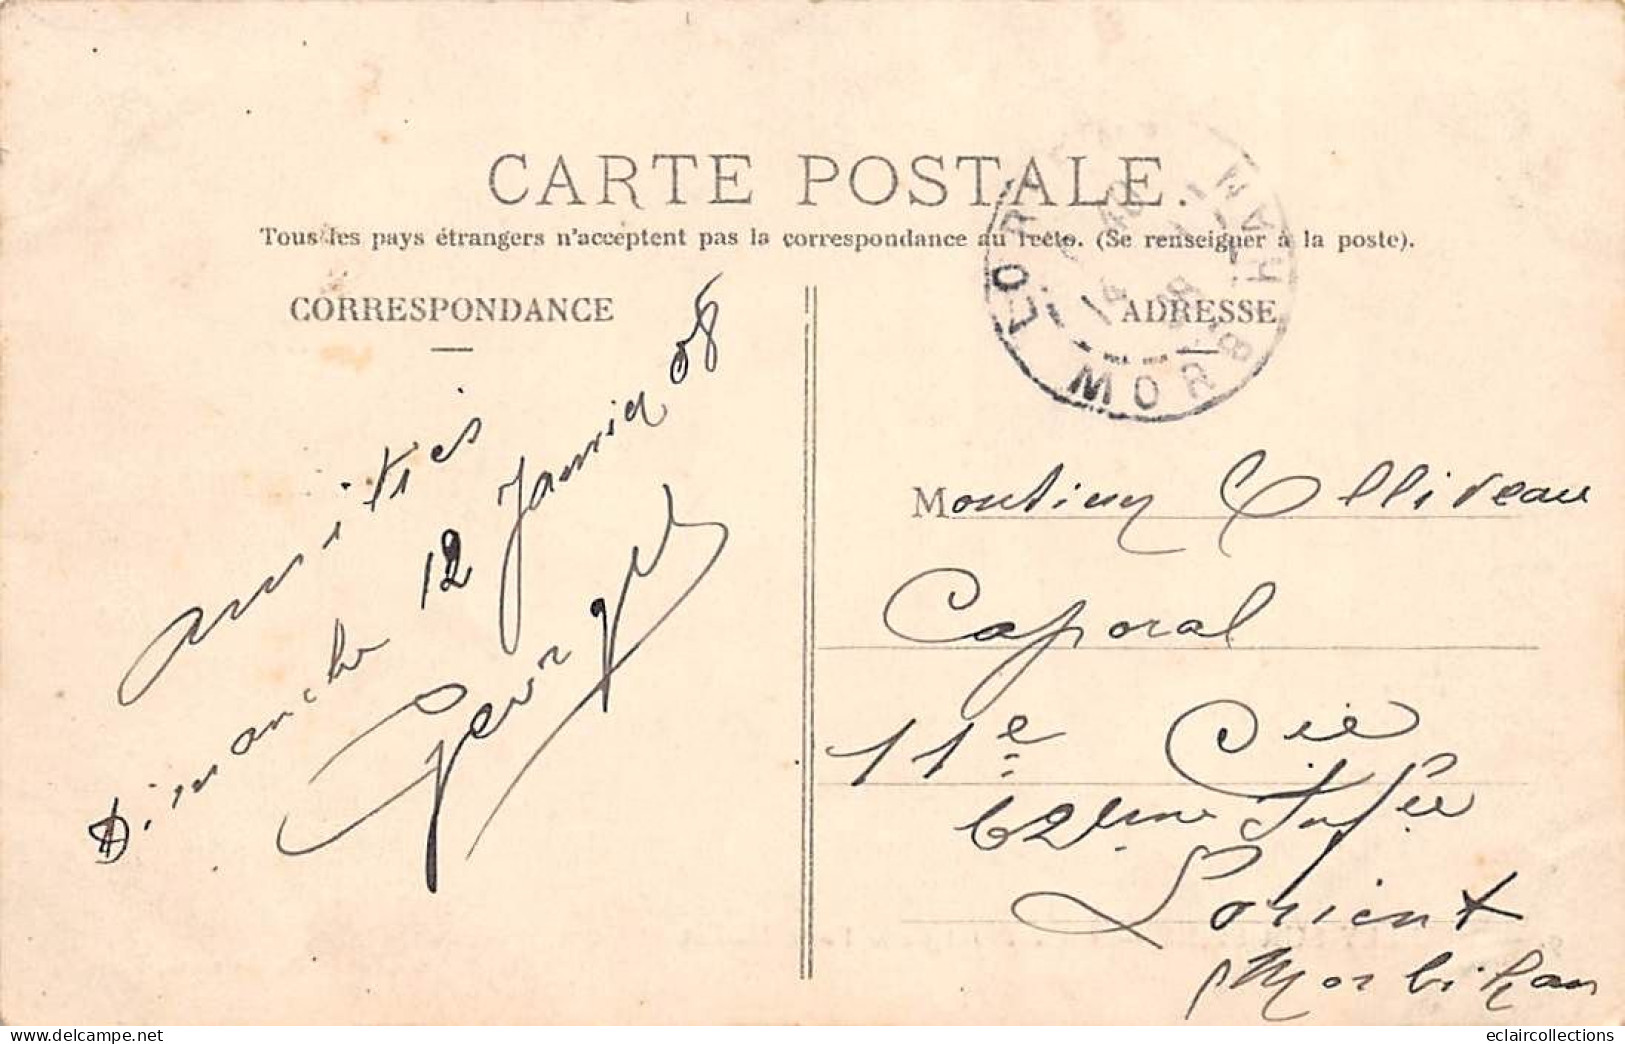 CARTE POSTALE.
Tous les pays étrangers n'acceptent pas la correspondance au recto. (Se renseigner à la poste).
CORRESPONDANCE
ADRESSE
LORIENT
MORBIHAN
amitiés
Dimanche 12 Janvier 08
Georges
M Olliveau
Caporal
11e Cie
62ème Inf
Lorient
Morbihan
eclaircollections